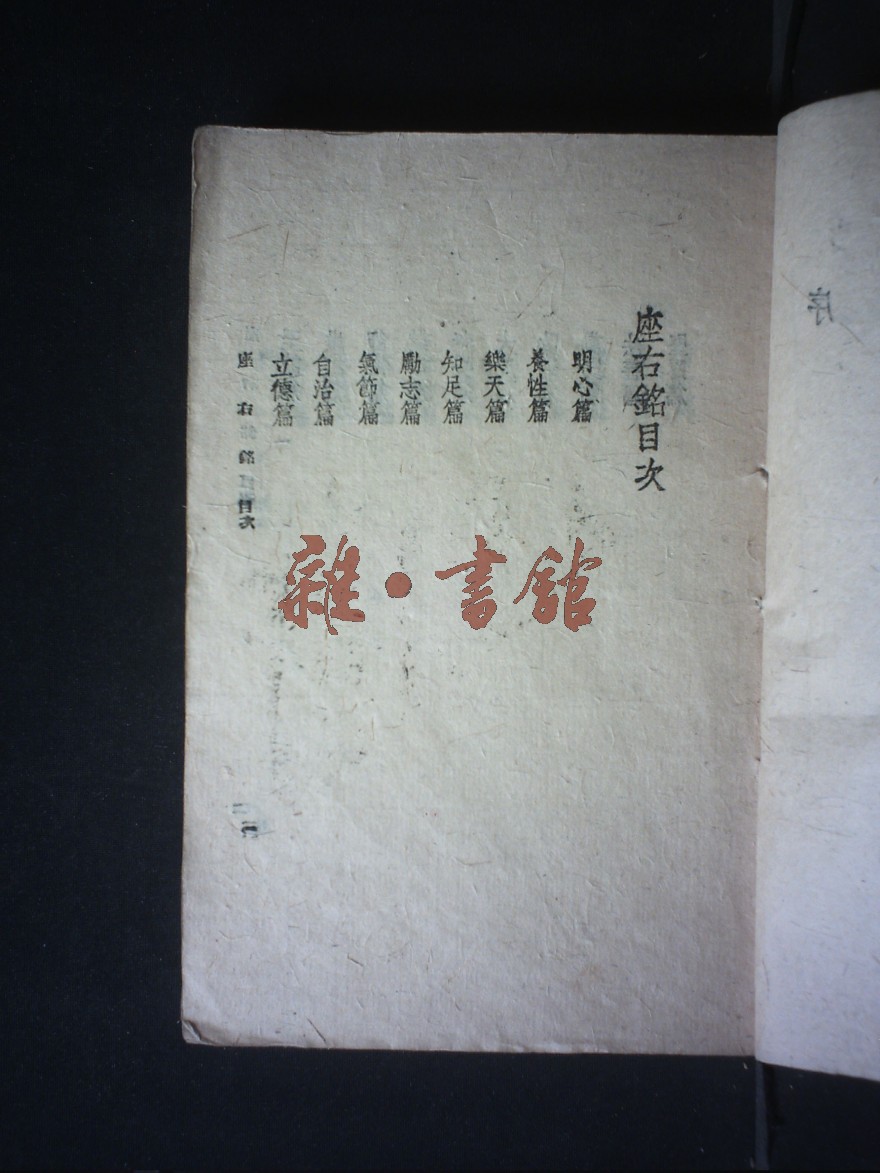 序
座右銘目次
明心篇
養性篇
樂天篇
知足篇
勵志篇
氣節篇
自治篇
立德篇
座右銘目次
雜•書館